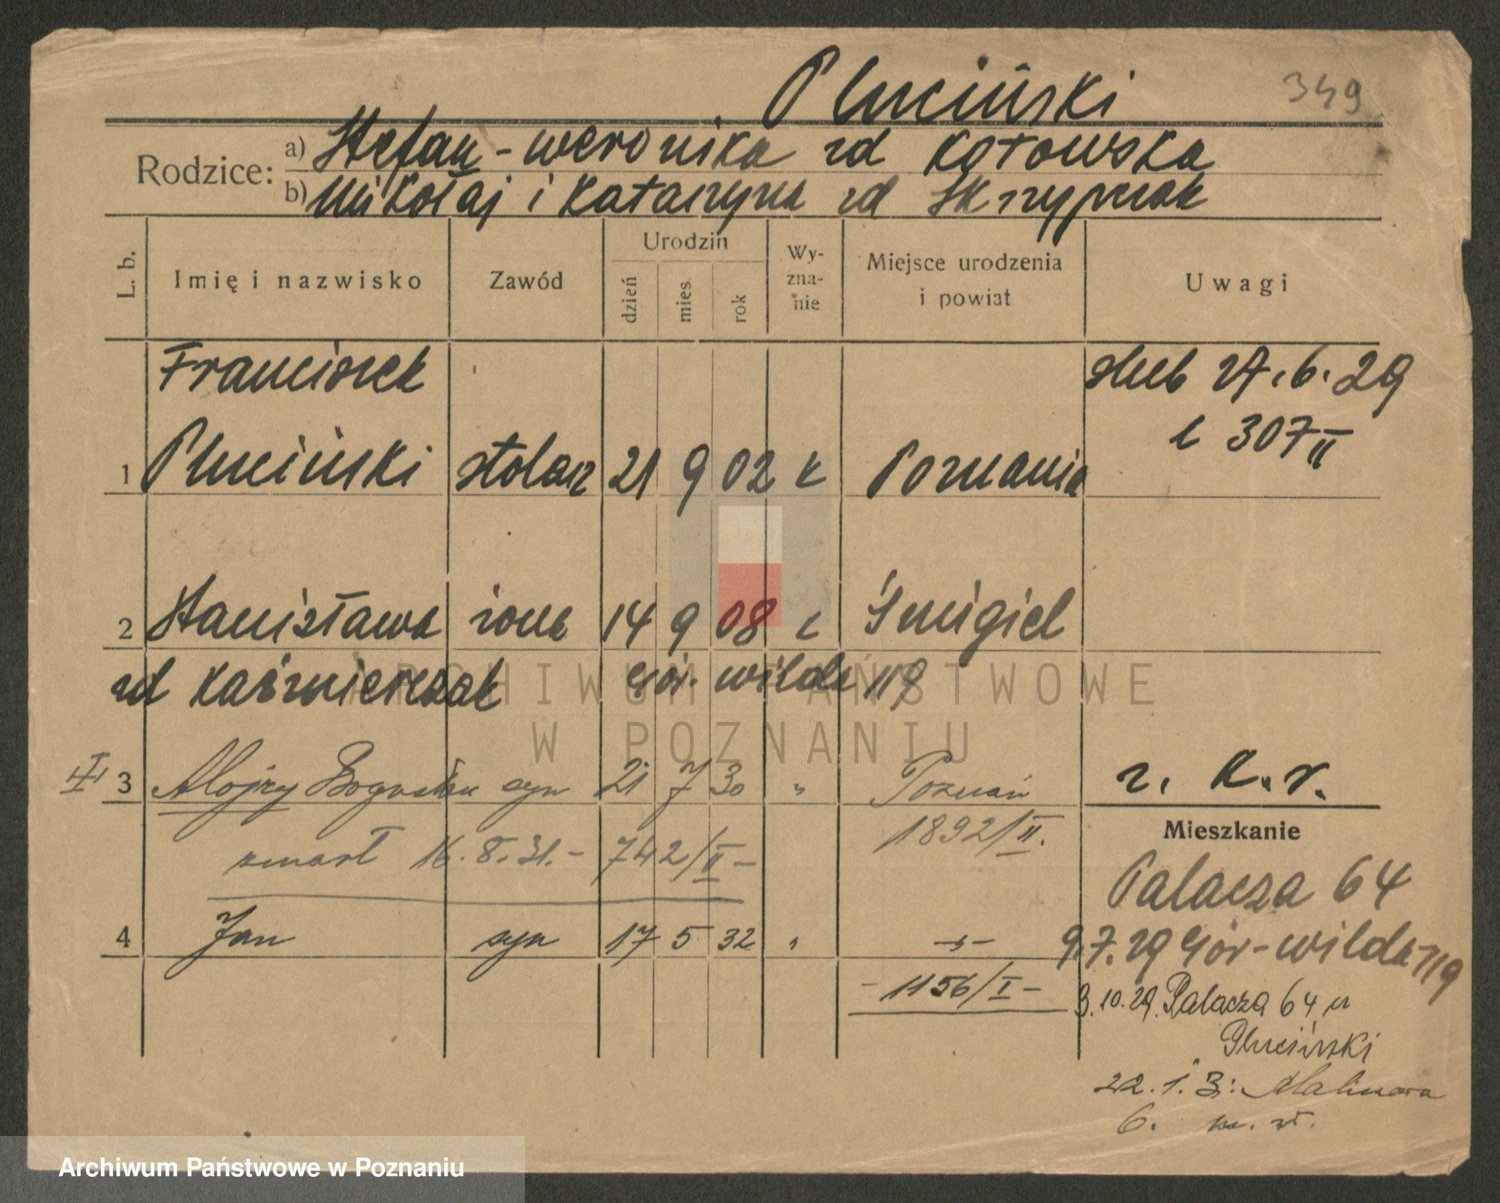 Pluciński 349
Rodzice: a) Stefan - Weronika zd Kotowska
b) Mikołaj i Katarzyna zd Skrzypczak
L. b. Imię i nazwisko Zawód Urodzin dzień mies. rok Wy-zna-nie Miejsce urodzenia i powiat Uwagi
Franciszek ślub 27.6.29
1 Pluciński stolarz 21 9 02 k Poznania
l 307 II
2 Stanisława żona 14 9 08 k Śmigiel
zd Kaźmierczak Gór. Wilda 119
III 3 Alojzy Bogusław syn 21 7 30 " Poznań
1892/II.
r. k. r.
Mieszkanie
zmarł 16.8.31.- 742/II -
Palacza 64
4 Jan syn 17 5 32 " -"-
- 1156/I -
9.7.29 Gór-Wilda 119
3.10.29. Palacza 64 u
Pluciński
22.1.3: Malinowa
6. m. wł.
ARCHIWUM PAŃSTWOWE
W POZNANIU
Archiwum Państwowe w Poznaniu